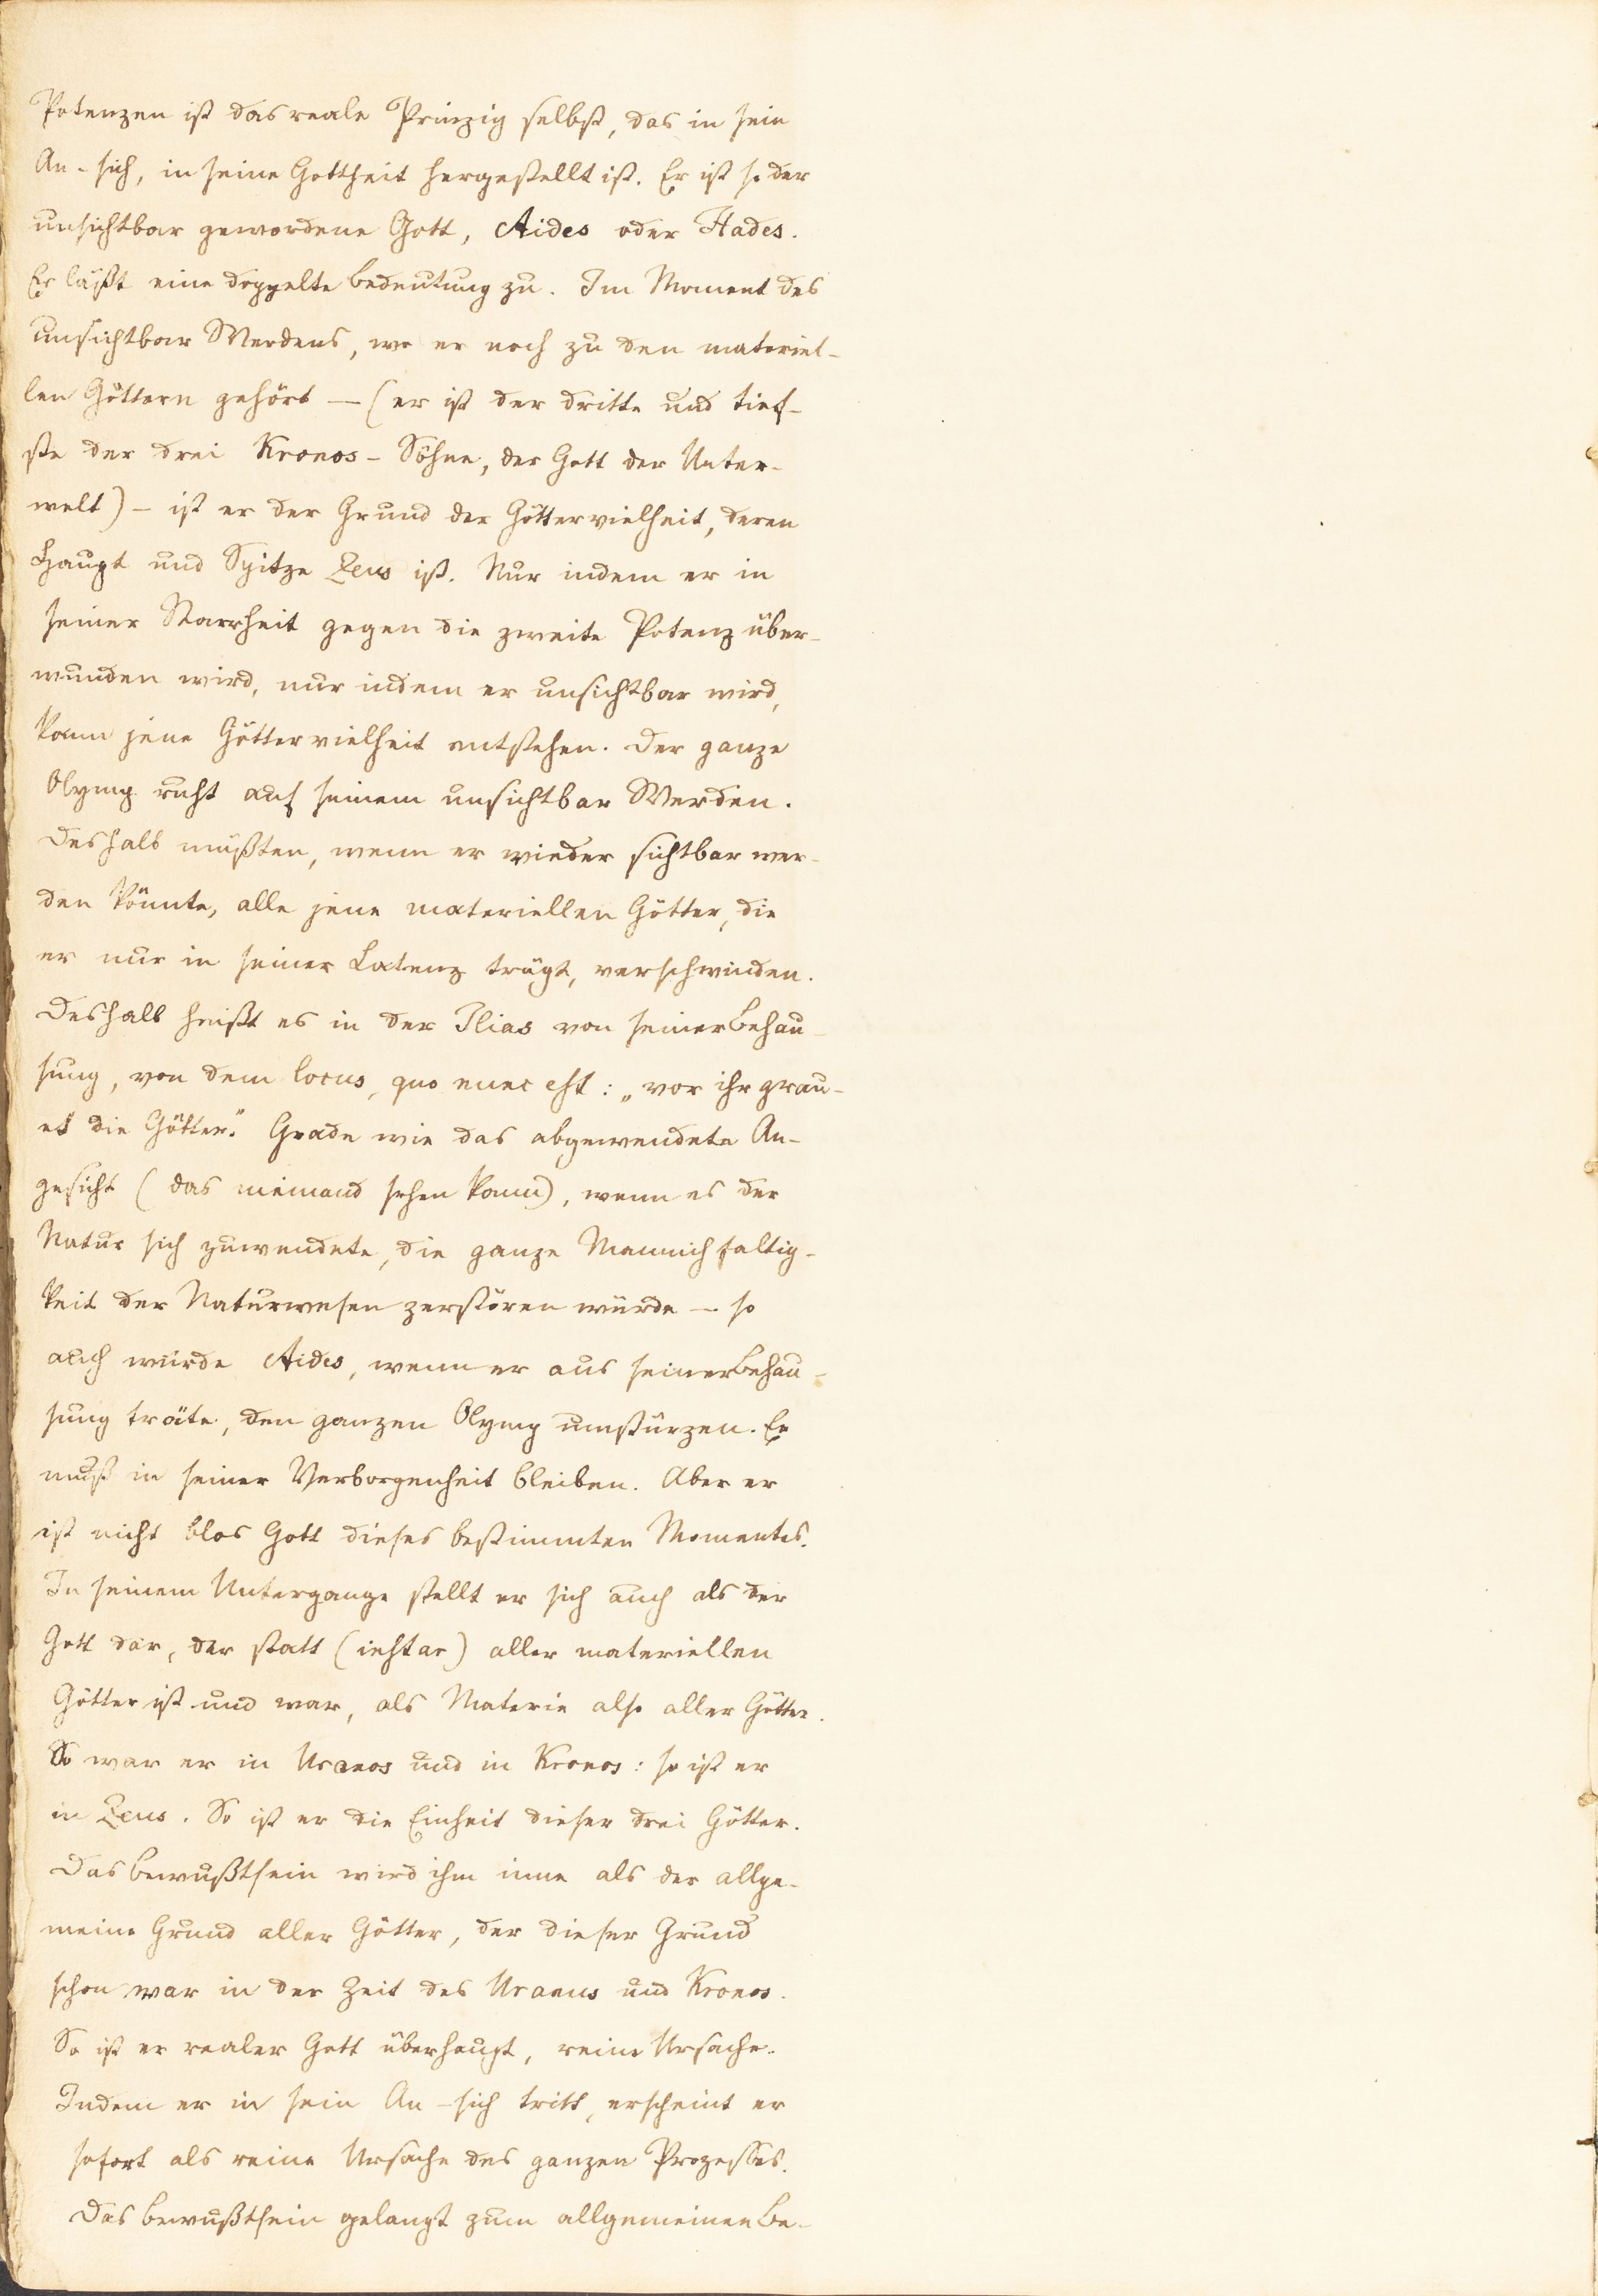 Potenzen ist das reale Prinzip selbst, das in sein
An-sich, in seine Gottheit hergestellt ist. Er ist so der
unsichtbar gewordene Gott, Aides oder Hades.
Er läßt eine doppelte Bedeutung zu. Im Moment des
unsichtbar Werdens, wo er noch zu den materiel-
len Göttern gehört — (er ist der dritte und tief-
ste der drei Kronos-Söhne, der Gott der Unter-
welt) — ist er der Grund der Göttervielheit, deren
Haupt und Spitze Zeus ist. Nur indem er in
seiner Starrheit gegen die zweite Potenz über-
wunden wird, nur indem er unsichtbar wird,
kann jene Göttervielheit entstehen. Der ganze
Olymp ruht auf seinem unsichtbar Werden.
Deshalb müßten, wenn er wieder sichtbar wer-
den könnte, alle jene materiellen Götter, die
er nur in seiner Latenz trägt, verschwinden.
Deshalb heißt es in der Ilias von seiner Behau-
sung, von dem locus, quo nunc est: „vor ihr grau-
et die Götter." Grade wie das abgewendete An-
gesicht (das niemand sehen kann), wenn es der
Natur sich zuwendete, die ganze Mannichfaltig-
keit der Naturwesen zerstören würde — so
auch würde Aides, wenn er aus seiner Behau-
sung träte, den ganzen Olymp umstürzen. Er
muß in seiner Verborgenheit bleiben. Aber er
ist nicht blos Gott dieses bestimmten Momentes.
In seinem Untergange stellt er sich auch als der
Gott dar, der statt (instar) aller materiellen
Götter ist und war, als Materie also aller Götter.
So war er in Uranos und in Kronos: so ist er
in Zeus. So ist er die Einheit dieser drei Götter.
Das Bewußtsein wird ihm inne als der allge-
meine Grund aller Götter, der dieser Grund
schon war in der Zeit des Uranus und Kronos.
So ist er realer Gott überhaupt, reine Ursache.
Indem er in sein An-sich tritt, erscheint er
sofort als reine Ursache des ganzen Prozesses.
Das Bewußtsein gelangt zum allgemeinen Be-